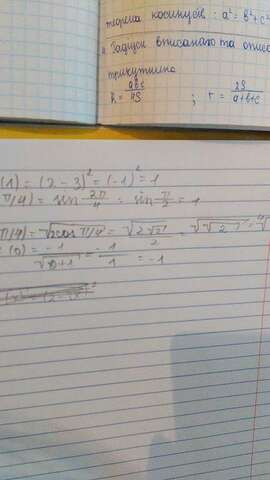 теорема косинусів : a² = b² + c²
4. Радіуси вписаного та описа
трикутника
R = abc/4S ; r = 2S/a+b+c
(1) = (2 - 3)² = (-1)² = 1
π/4) = sin 2π/4 = sin π/2 = 1
π/4) = √2cos π/4 = √2√2/2 = √√2
(0) = -1/√0+1 = -1/1 = -1